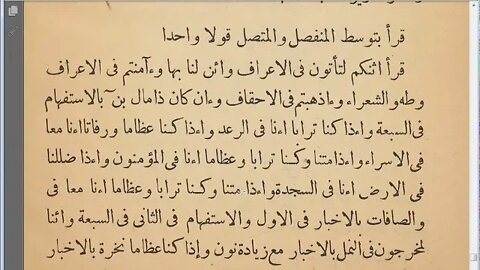 قرأ بتوسط المنفصل والمتصل قولا واحدا
قرأ ائنكم لتأتون فى الاعراف وائن لنا بها وءآمنتم فى الاعراف
وطه والشعراء وءاذهبتم فى الاحقاف وءان كان ذا مال بن بالاستفهام
فى السبعة واءذا كنا ترابا اءنا فى الرعد واءذا كنا عظاما ورفاتا اءنا معا
فى الاسراء واءذا متنا وكنا ترابا وعظاما اءنا فى المؤمنون واءذا ضللنا
فى الارض اءنا فى السجدة واءذا متنا وكنا ترابا وعظاما اءنا معا فى
والصافات بالاخبار فى الاول والاستفهام فى الثانى فى السبعة وائنا
لمخرجون فى النمل بالاخبار مع زيادة نون وإذا كنا عظاما نخرة بالاخبار